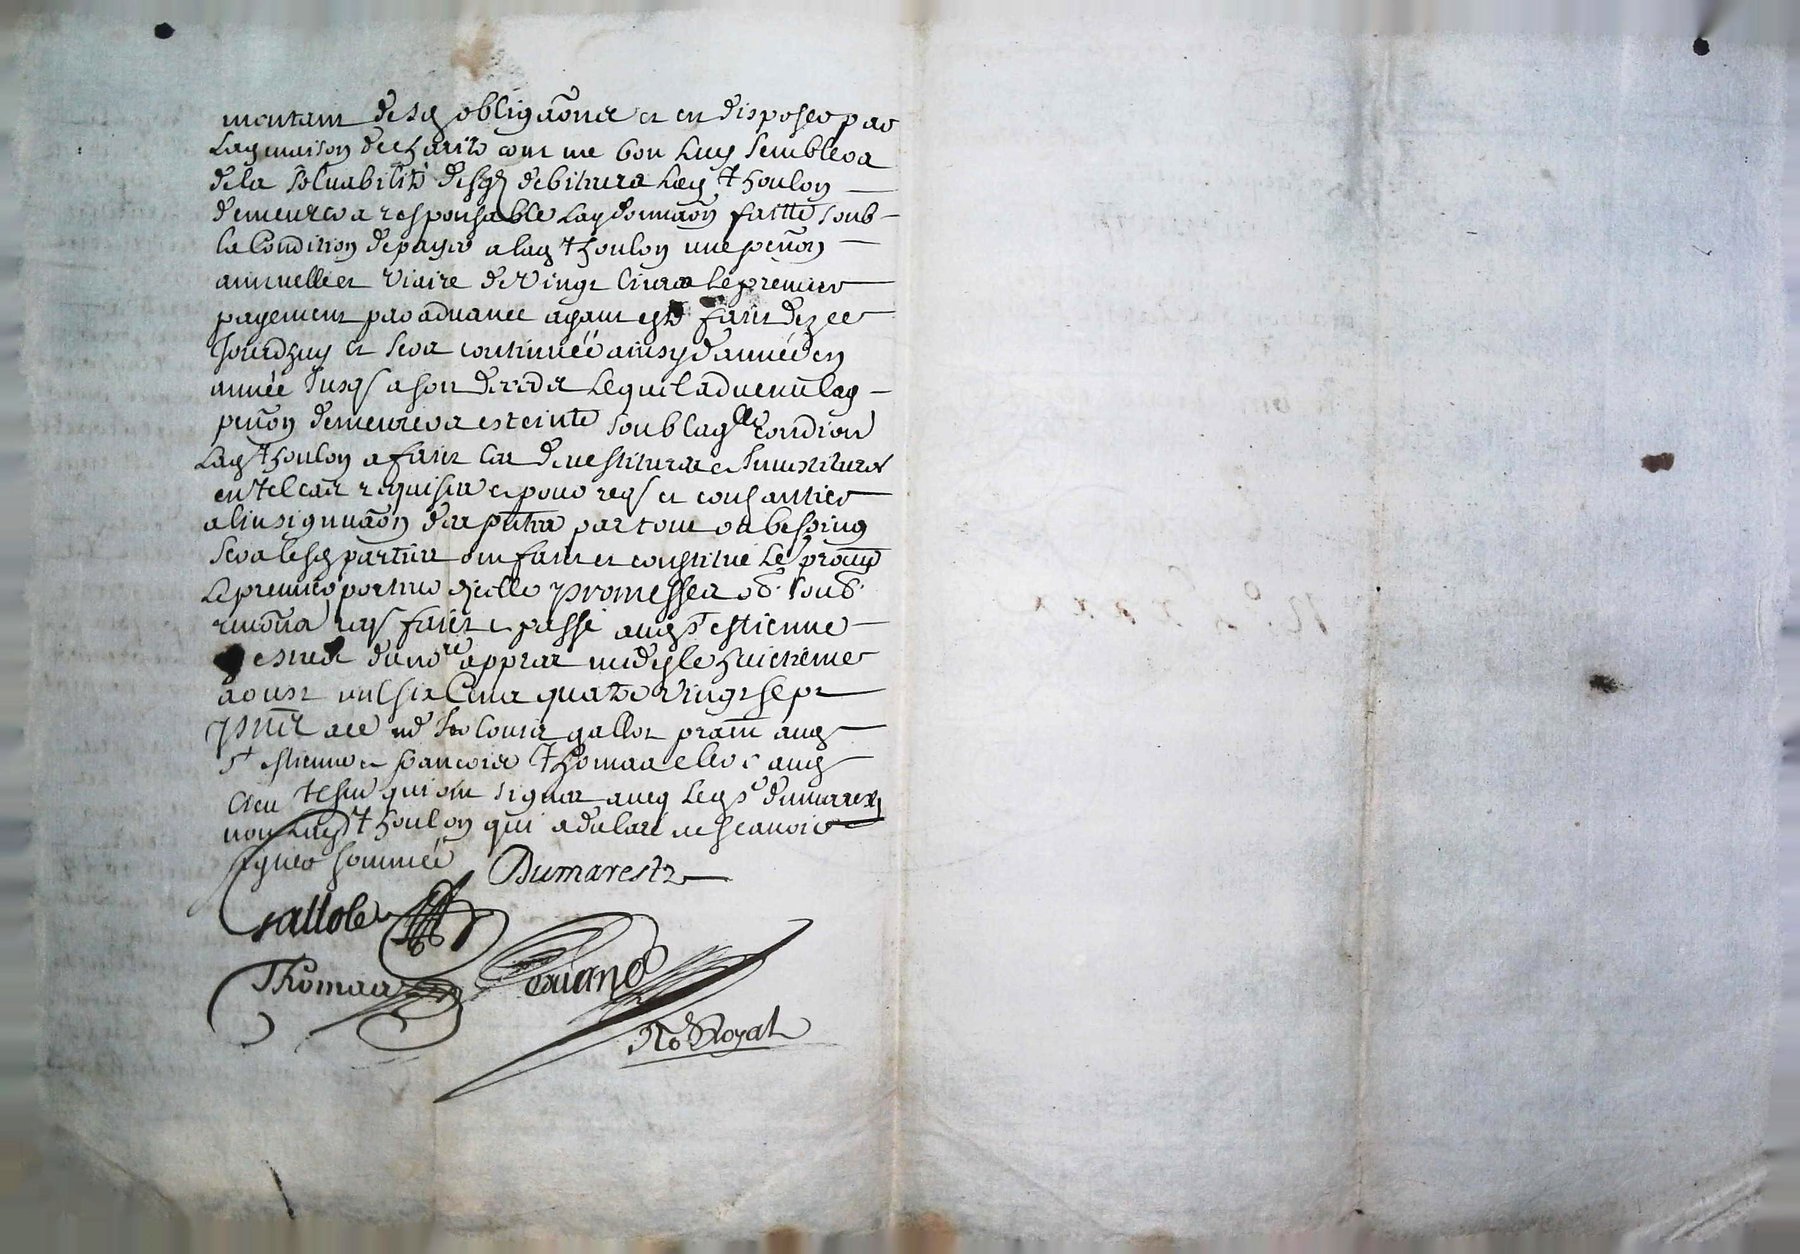 montant desd obligaõns et en disposer par
Lad maison de charité comme bon luy semblera
de la solvabilité desd debiteurs Lad Thoulon
demeurera responsable Lad donnaõn faitte soub
la Condition de payer a lad Thoulon une penõn
annuelle et viaire de vingt livres le premier
payement par advance ayant esté fait dez ce
Jourdhuy et sera continuée ainsy d'année en
année Jusqs a son deceds lequel advenu lad
penõn demeurera esteinte soub lad condion
Lad Thoulon a fait les devestitures et Investitures
en tel cas requises et pour reqs et consantier
a linsignuaõn des pñtes par tout ou besoing
sera lesd parties ont fait et constitué le prouqr
Le premier porteur dicelle promesses ob soub
renõns reqs fait et passé aud St estienne
estude du nore appres midy le huictieme
aoust mil six Cens quatre vingt sept
pñts ace me louis gallot pratn aud
St estienne et francois Thomas clerc aud
lieu tesm qui ont signez avec led sr dumarest
non lad Thoulon qui a declaré ne scavoir
signer sommée Dumarest
Gallot
Thomas
No Royal